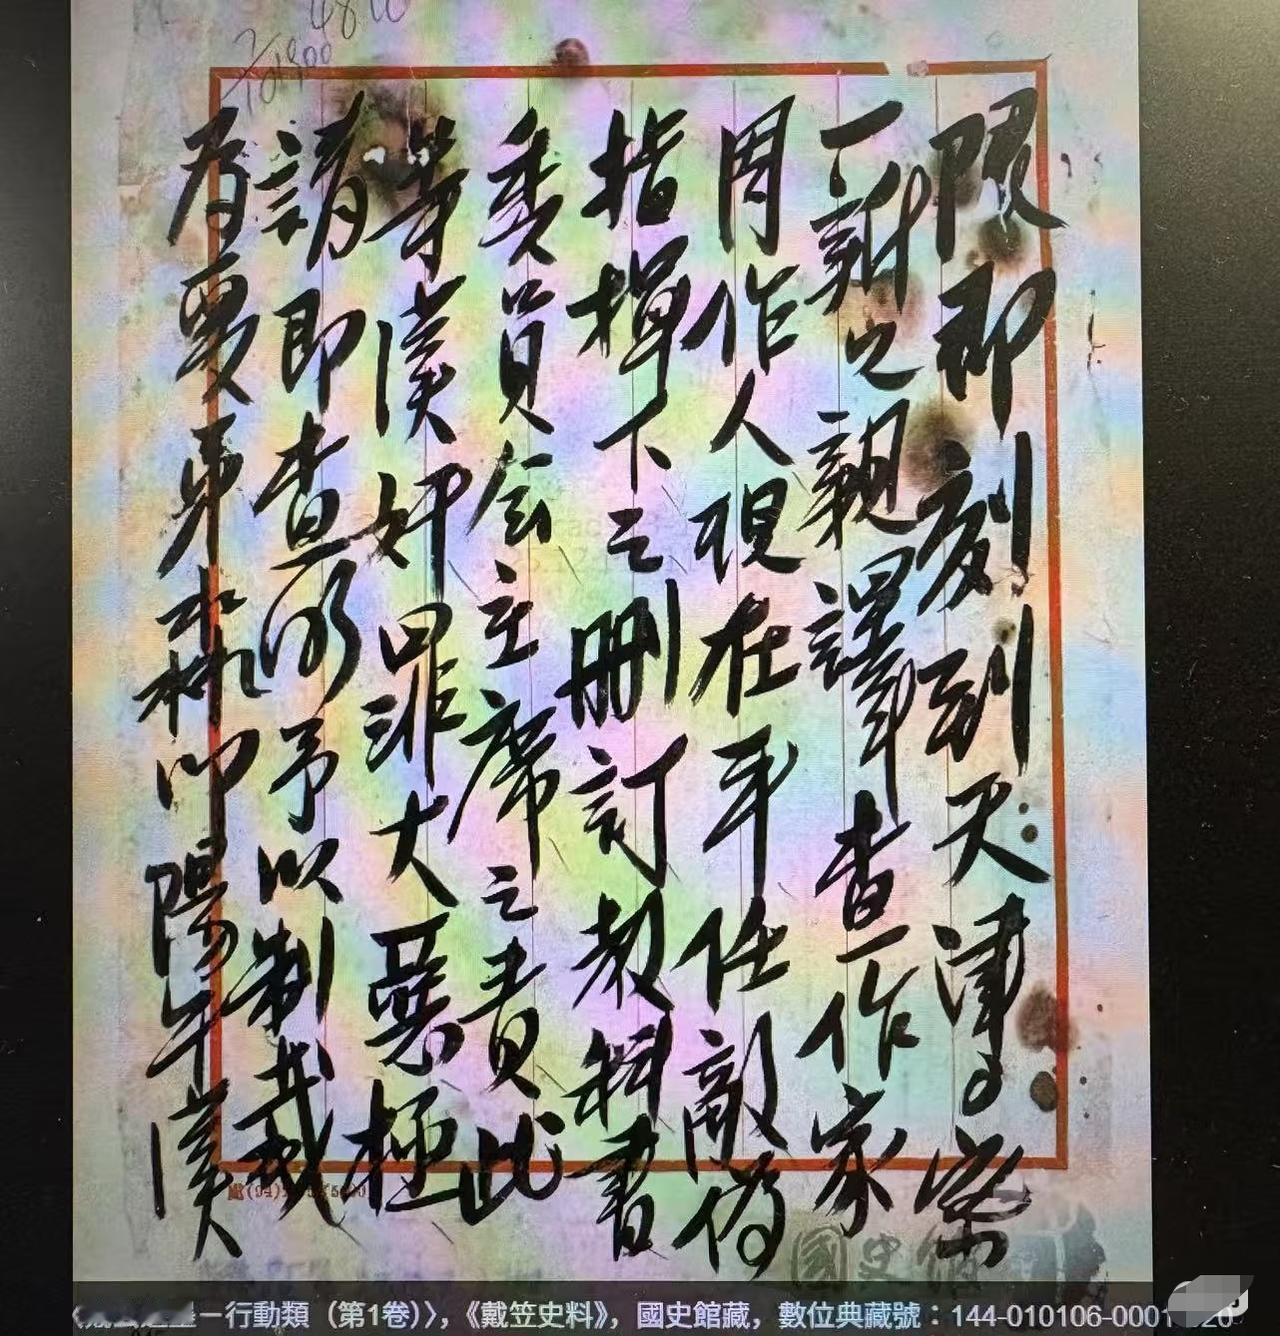 限即刻到天津。榮
一新之親譯。查作家
周作人現在平任敵偽
指揮下之刪訂教科書
委員會主席之責此
等漢奸罪大惡極
請即查明予以制裁
為要弟森叩陽午漢
國史館
行動類（第1卷）〉，《戴笠史料》，國史館藏，數位典藏號：144-010106-0001